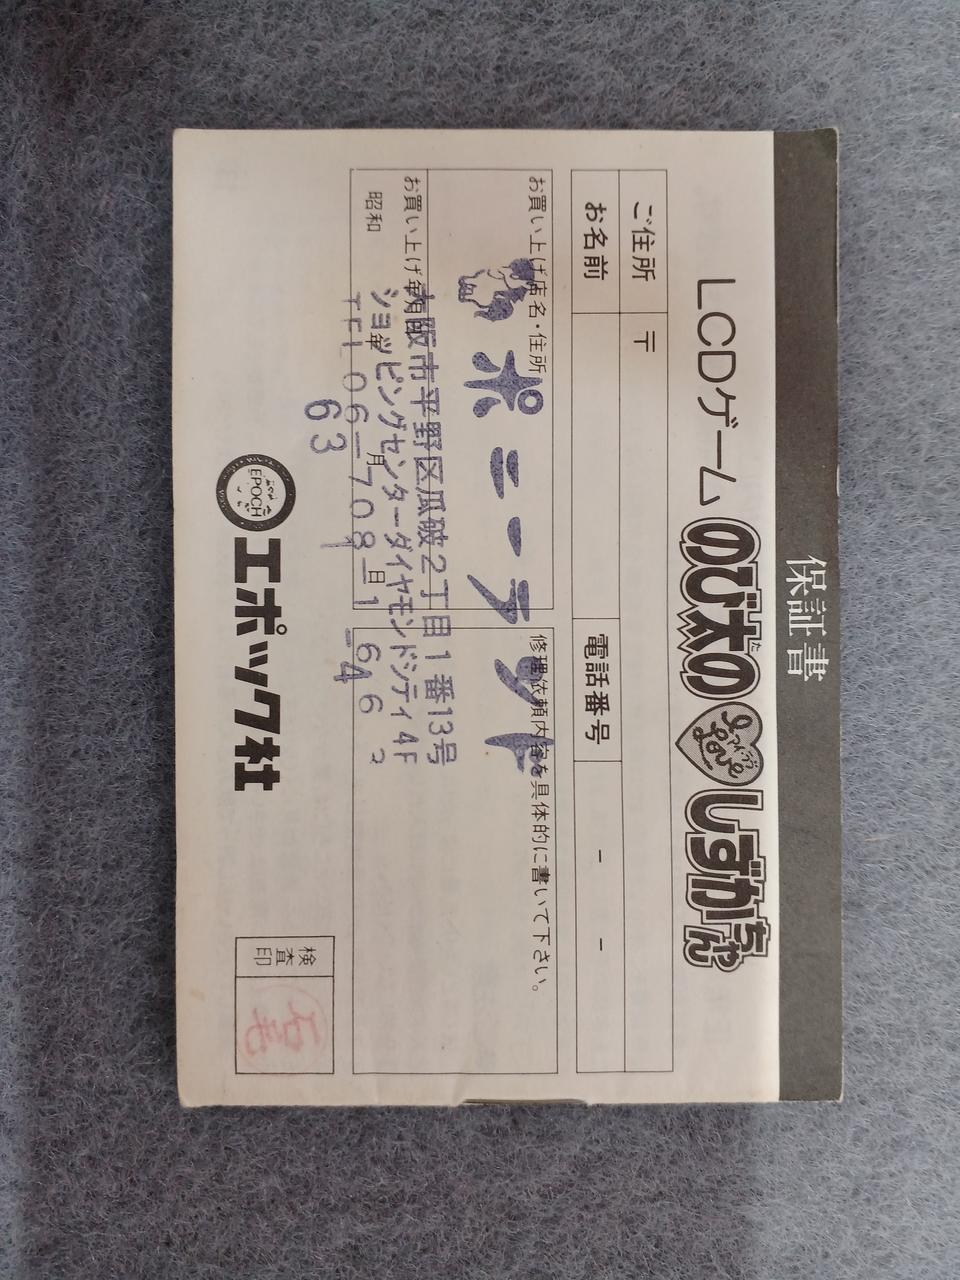 保証書
LCDゲーム のび太の I アイラブ Love しずかちゃん
た
ご住所 〒
お名前
電話番号 - -
お買い上げ店名・住所
ポニーランド
大阪市平野区瓜破2丁目1番13号
ショッピングセンターダイヤモンドシティ4F
TEL 06-708-1646
お買い上げ年月日
昭和 年 月 日
63 1 -4
修理依頼内容を具体的に書いて下さい。
EPOCH
エポック社
検査印